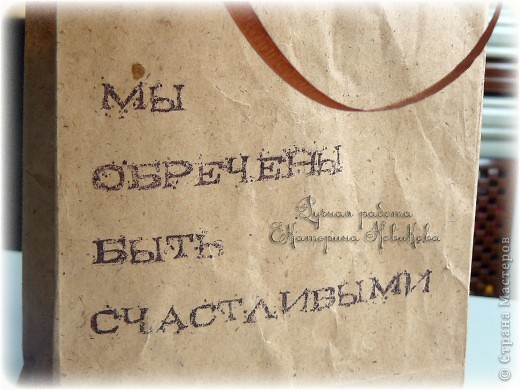 МЫ
ОБРЕЧЕНЫ
БЫТЬ
СЧАСТЛИВЫМИ
Ручная работа
Екатерина Новикова
© Страна Мастеров